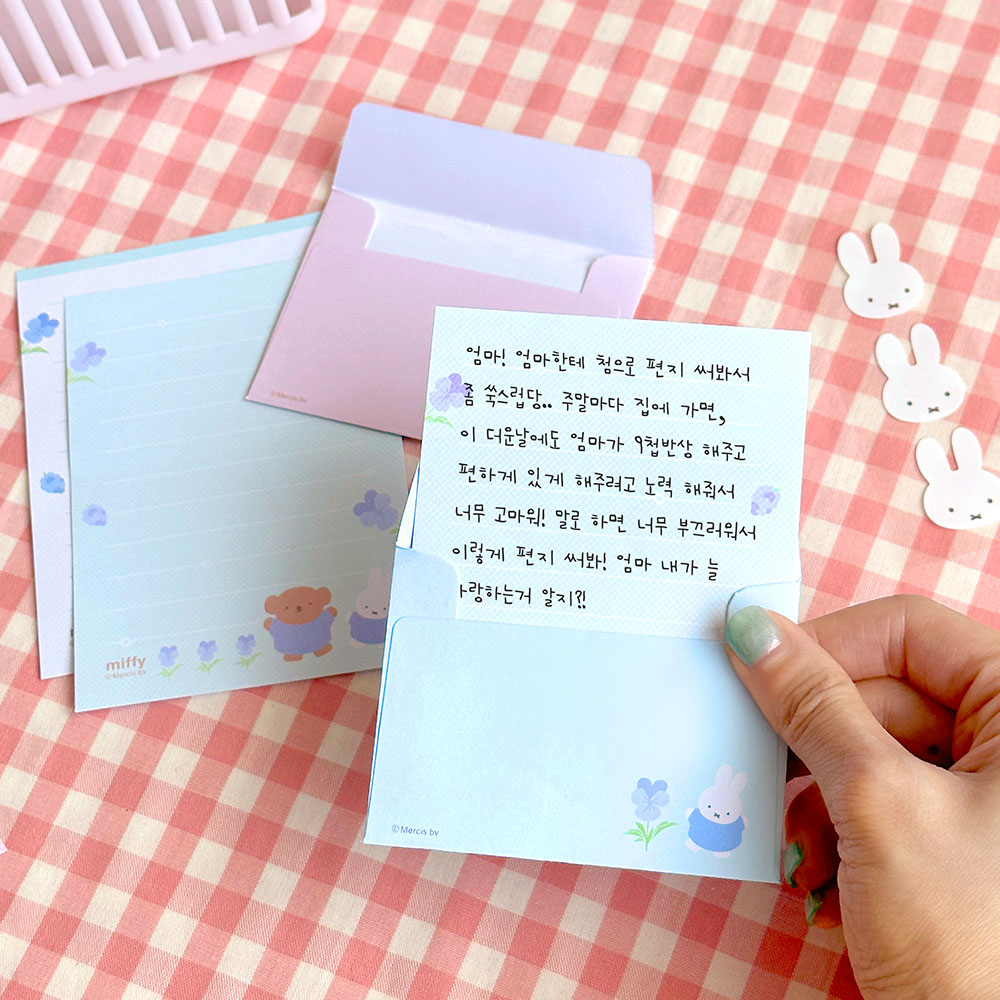 엄마! 엄마한테 첨으로 편지 써봐서
좀 쑥스럽당.. 주말마다 집에 가면,
이 더운날에도 엄마가 9첩반상 해주고
편하게 있게 해주려고 노력 해줘서
너무 고마워! 말로 하면 너무 부끄러워서
이렇게 편지 써봐! 엄마 내가 늘
사랑하는거 알지?!
©Mercis bv
miffy
©Mercis bv
©Mercis bv